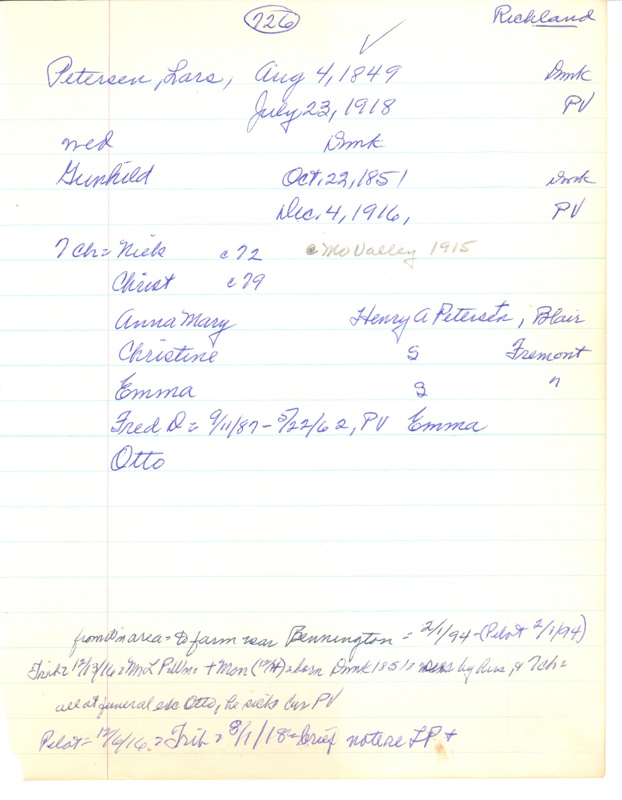 726 Richland
✓
Petersen, Lars, Aug 4, 1849 Dmk
July 23, 1918 PV
wed Dmk
Gunhild Oct. 22, 1851 Dmk
Dec. 4, 1916, PV
7 Ch = Niels c72 c Mo Valley 1915
Christ c79
Anna Mary Henry A Petersen, Blair
Christine S Fremont
Emma S "
Fred D = 9/11/87 - 5/22/62, PV Emma
Otto
from area = to farm near Bennington = 2/1/94 - (Pilot 2/1/94)
Trib = 12/13/16 = Mrs L P + Mon (12/4) = born Dmk 1851 = by hus, & 7 ch =
all at funeral exc Otto, he sick bur PV
Pilot = 12/6/16 = Trib = 8/1/18 = brief notice LP +